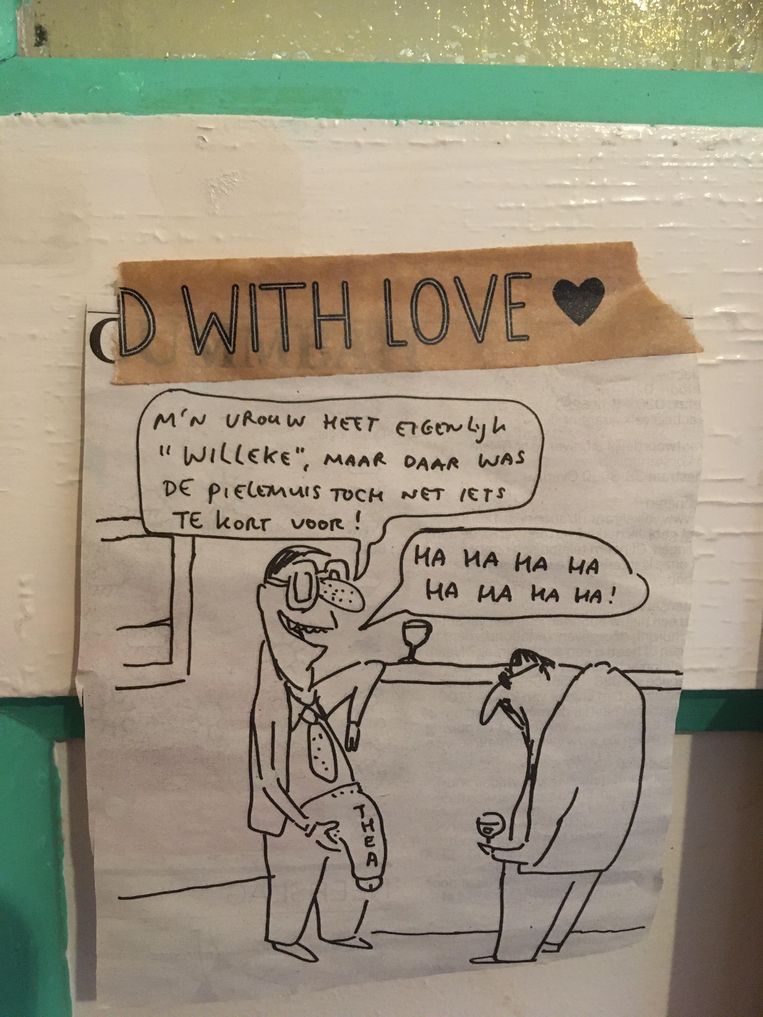 D WITH LOVE ♥
M'N VROUW HEET EIGENLIJK
"WILLEKE", MAAR DAAR WAS
DE PIELEMUIS TOCH NET IETS
TE KORT VOOR!
HA HA HA HA
HA HA HA HA!
THEA